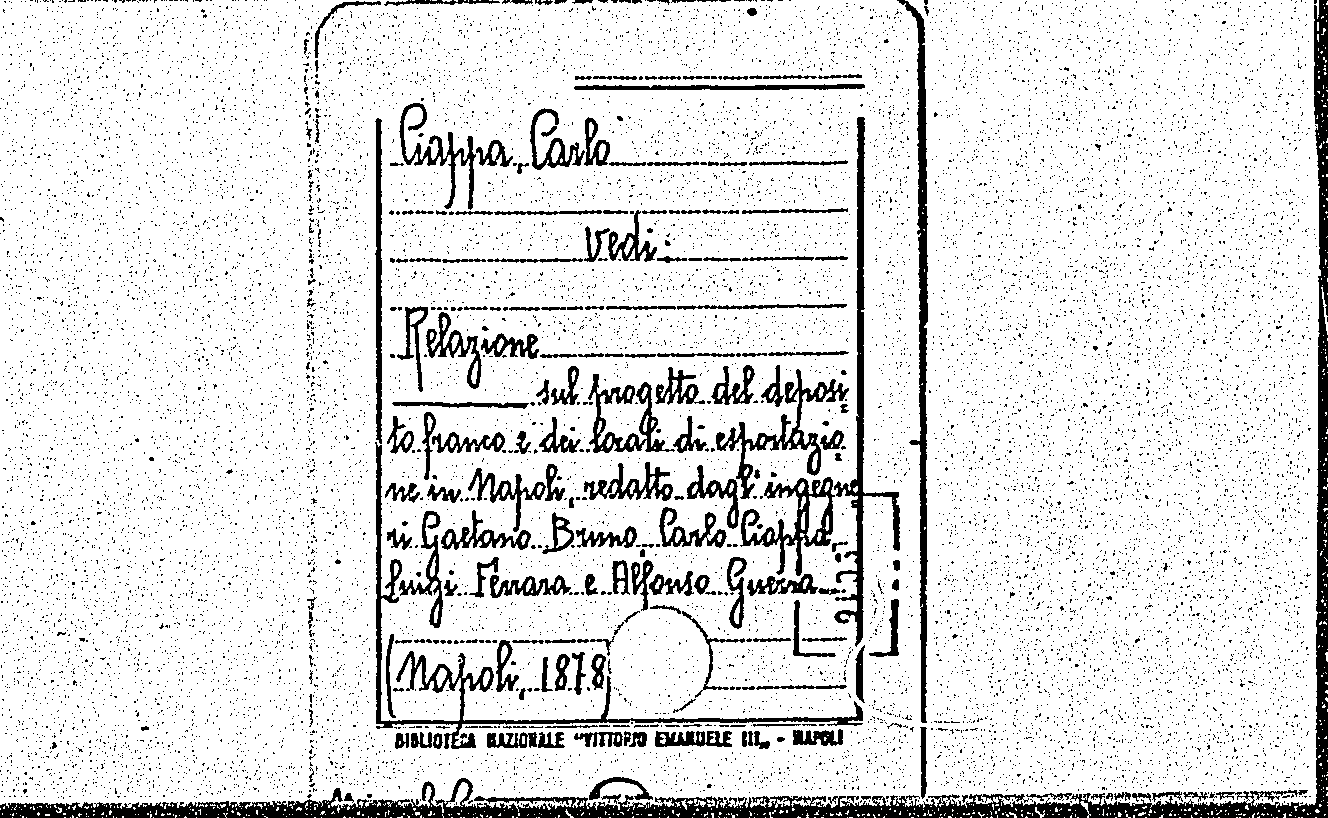 Ciappa, Carlo
Vedi:
Relazione
sul progetto del deposi
to franco e dei locali di esportazio
ne in Napoli, redatto dagl' ingegne
ri Gaetano Bruno, Carlo Ciappa,
Luigi Ferrara e Alfonso Guerra
(Napoli, 1878)
BIBLIOTECA NAZIONALE "VITTORIO EMANUELE III„ - NAPOLI